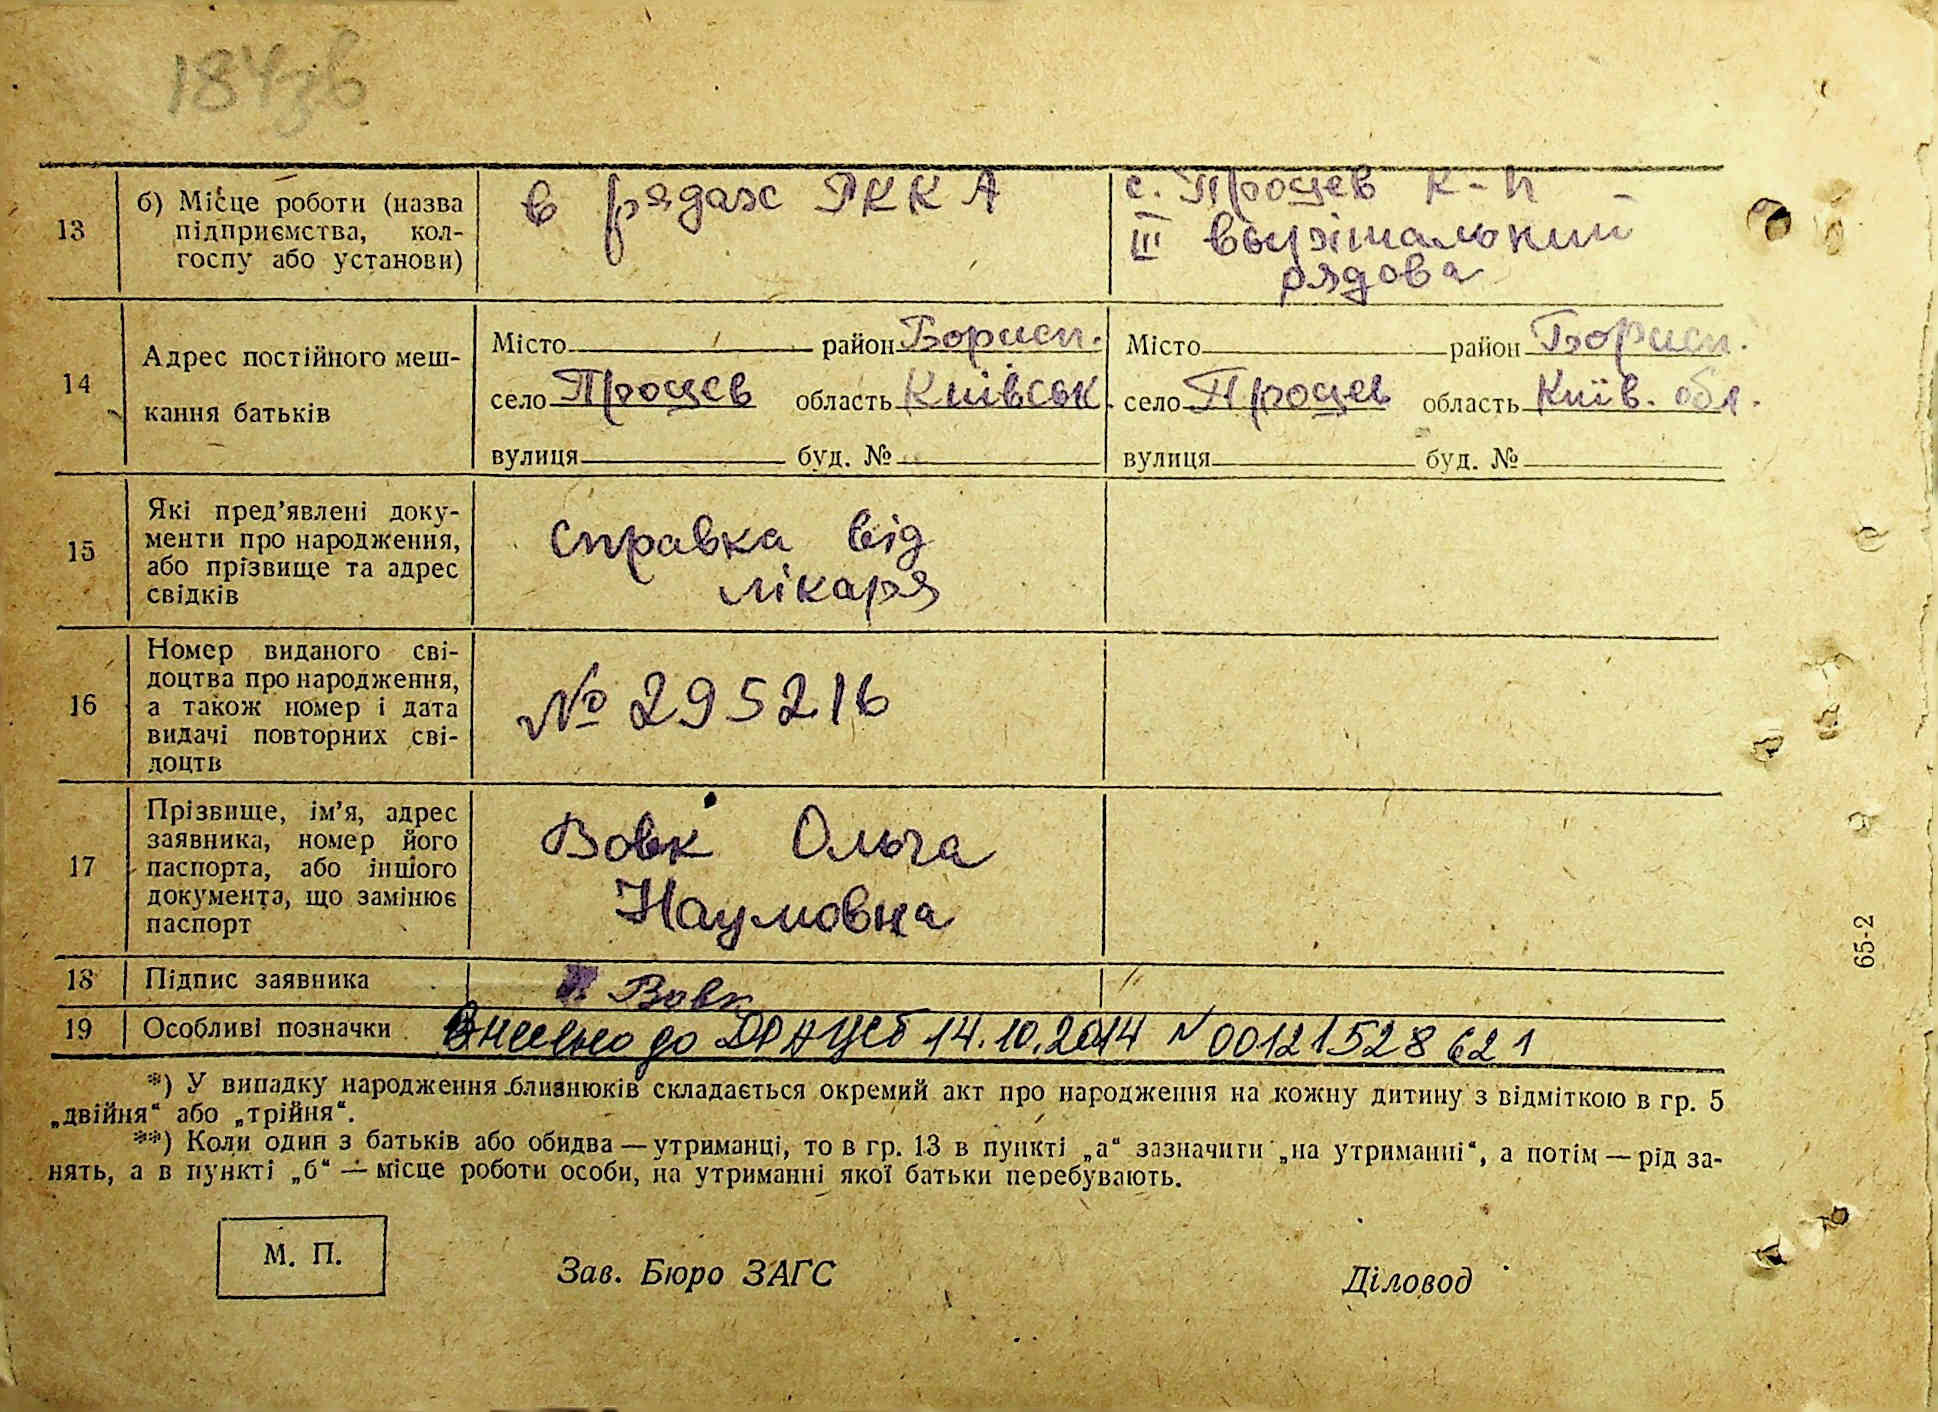 184зв
13
б) Місце роботи (назва
підприємства, кол-
госпу або установи)
в рядах РККА
с. Процев к-п
III
рядова
14
Адрес постійного меш-
кання батьків
Місто район Борисп.
село Процев область Київськ.
вулиця буд. №
Місто район Борисп.
село Процев область Київ. обл.
вулиця буд. №
15
Які пред’явлені доку-
менти про народження,
або прізвище та адрес
свідків
справка від
лікаря
16
Номер виданого сві-
доцтва про народження,
а також номер і дата
видачі повторних сві-
доцтв
№ 295216
17
Прізвище, ім’я, адрес
заявника, номер його
паспорта, або іншого
документа, що замінює
паспорт
Вовк Ольга
Наумовна
18
Підпис заявника
Вовк
19
Особливі позначки
Внесено до ДРАЦСГ 14.10.2014 N 00121528621
*) У випадку народження близнюків складається окремий акт про народження на кожну дитину з відміткою в гр. 5
„двійня“ або „трійня“.
**) Коли один з батьків або обидва — утриманці, то в гр. 13 в пункті „а“ зазначити „на утриманні“, а потім — рід за-
нять, а в пункті „б“ — місце роботи особи, на утриманні якої батьки перебувають.
М. П.
Зав. Бюро ЗАГС
Діловод
65-2